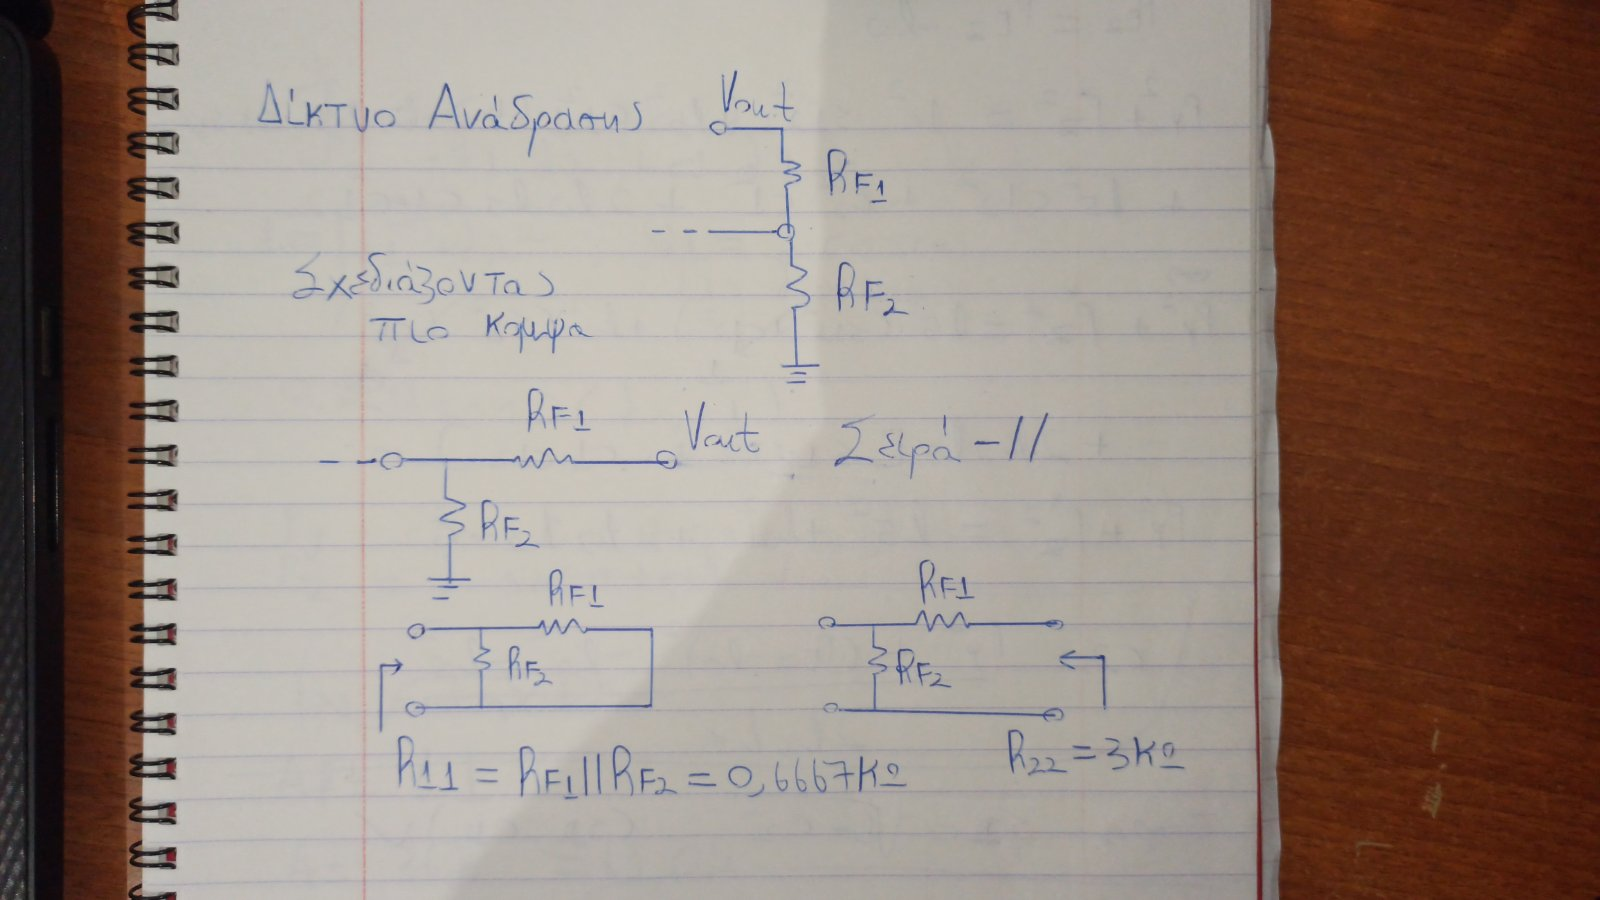 Δίκτυο Ανάδρασης
Vout
RF1
RF2
Σχεδιάζοντας
πιο κομψα
RF1
Vout
Σειρά-//
RF2
RF1
RF2
R11 = RF1||RF2 = 0,6667ΚΩ
RF1
RF2
R22 = 3ΚΩ